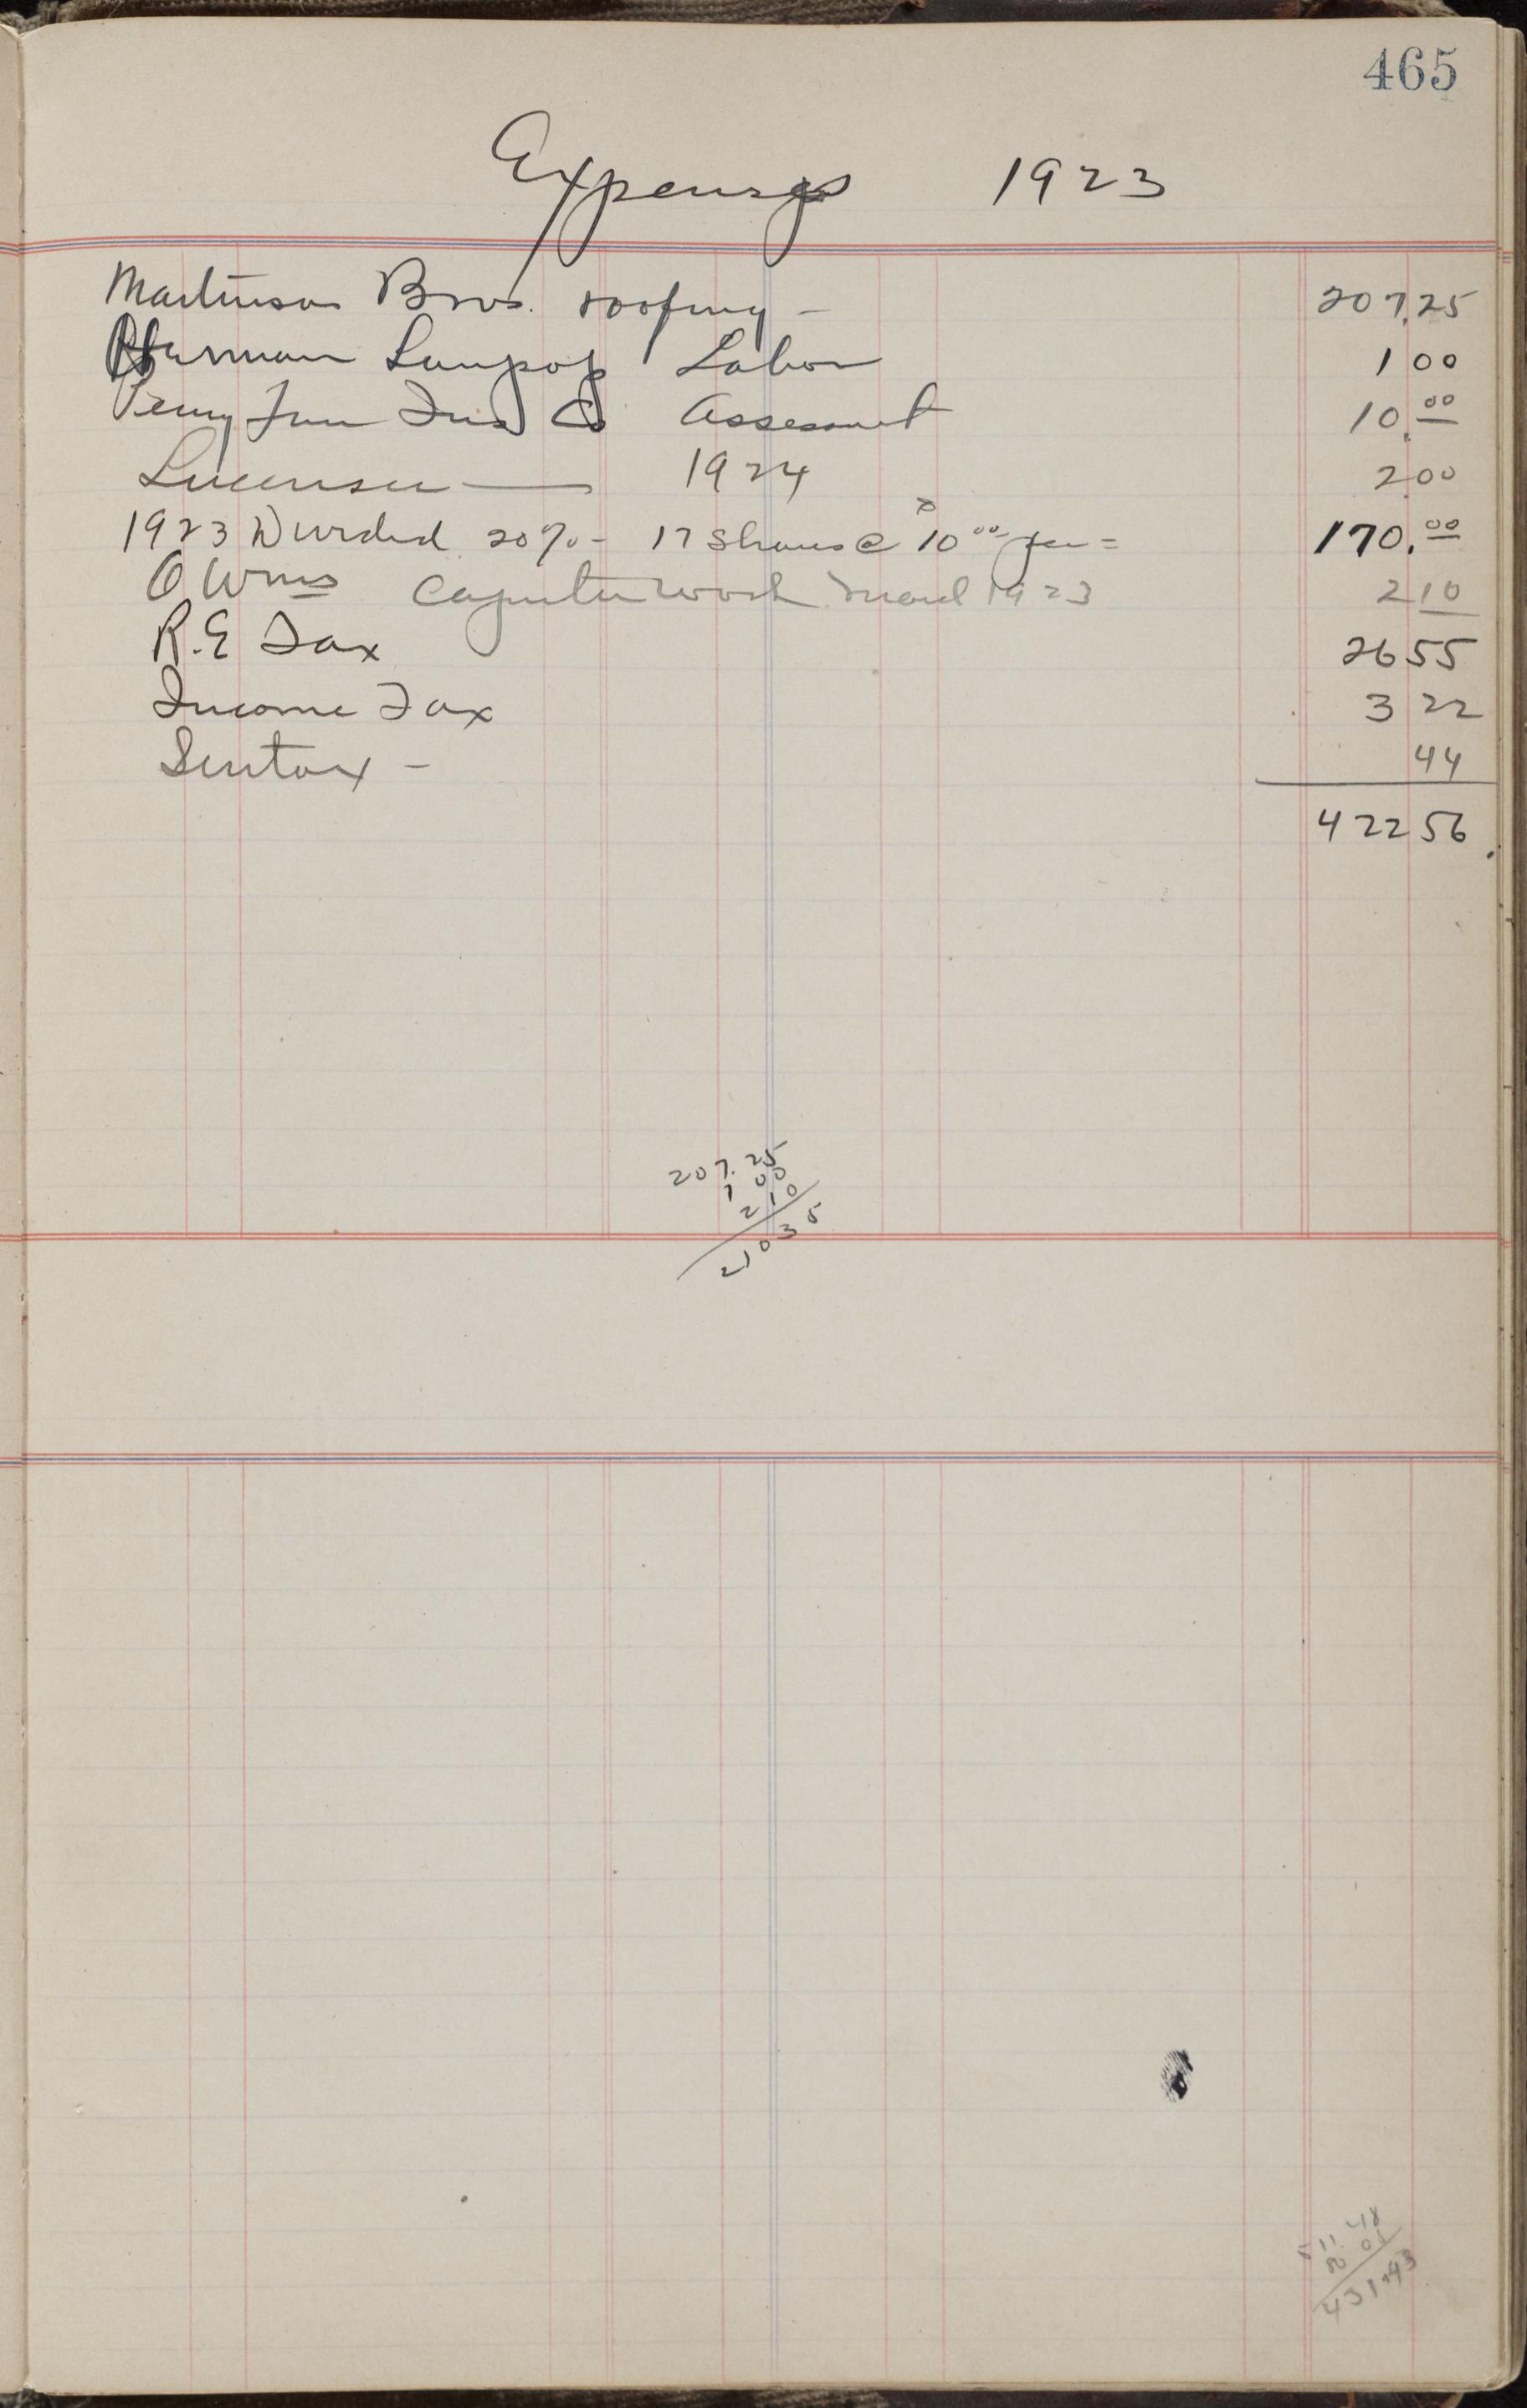 465
Expenses 1923
Martinson Bros. roofing - 207.25
Herman Labor 1 00
Ins Co Assesment 10.00
1924 2 00
1923 Divided 20% - 17 Shares @ 10 00 per = 170.00
O Wms work 1923 2 10
R.E Tax 26 55
Income Tax 3 22
- 44
422 56
207.25
1 00
2 10
210 35
511.48
80 05
431.43